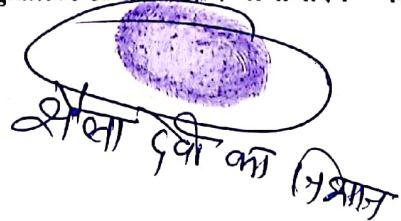 शैला देवी का निशान